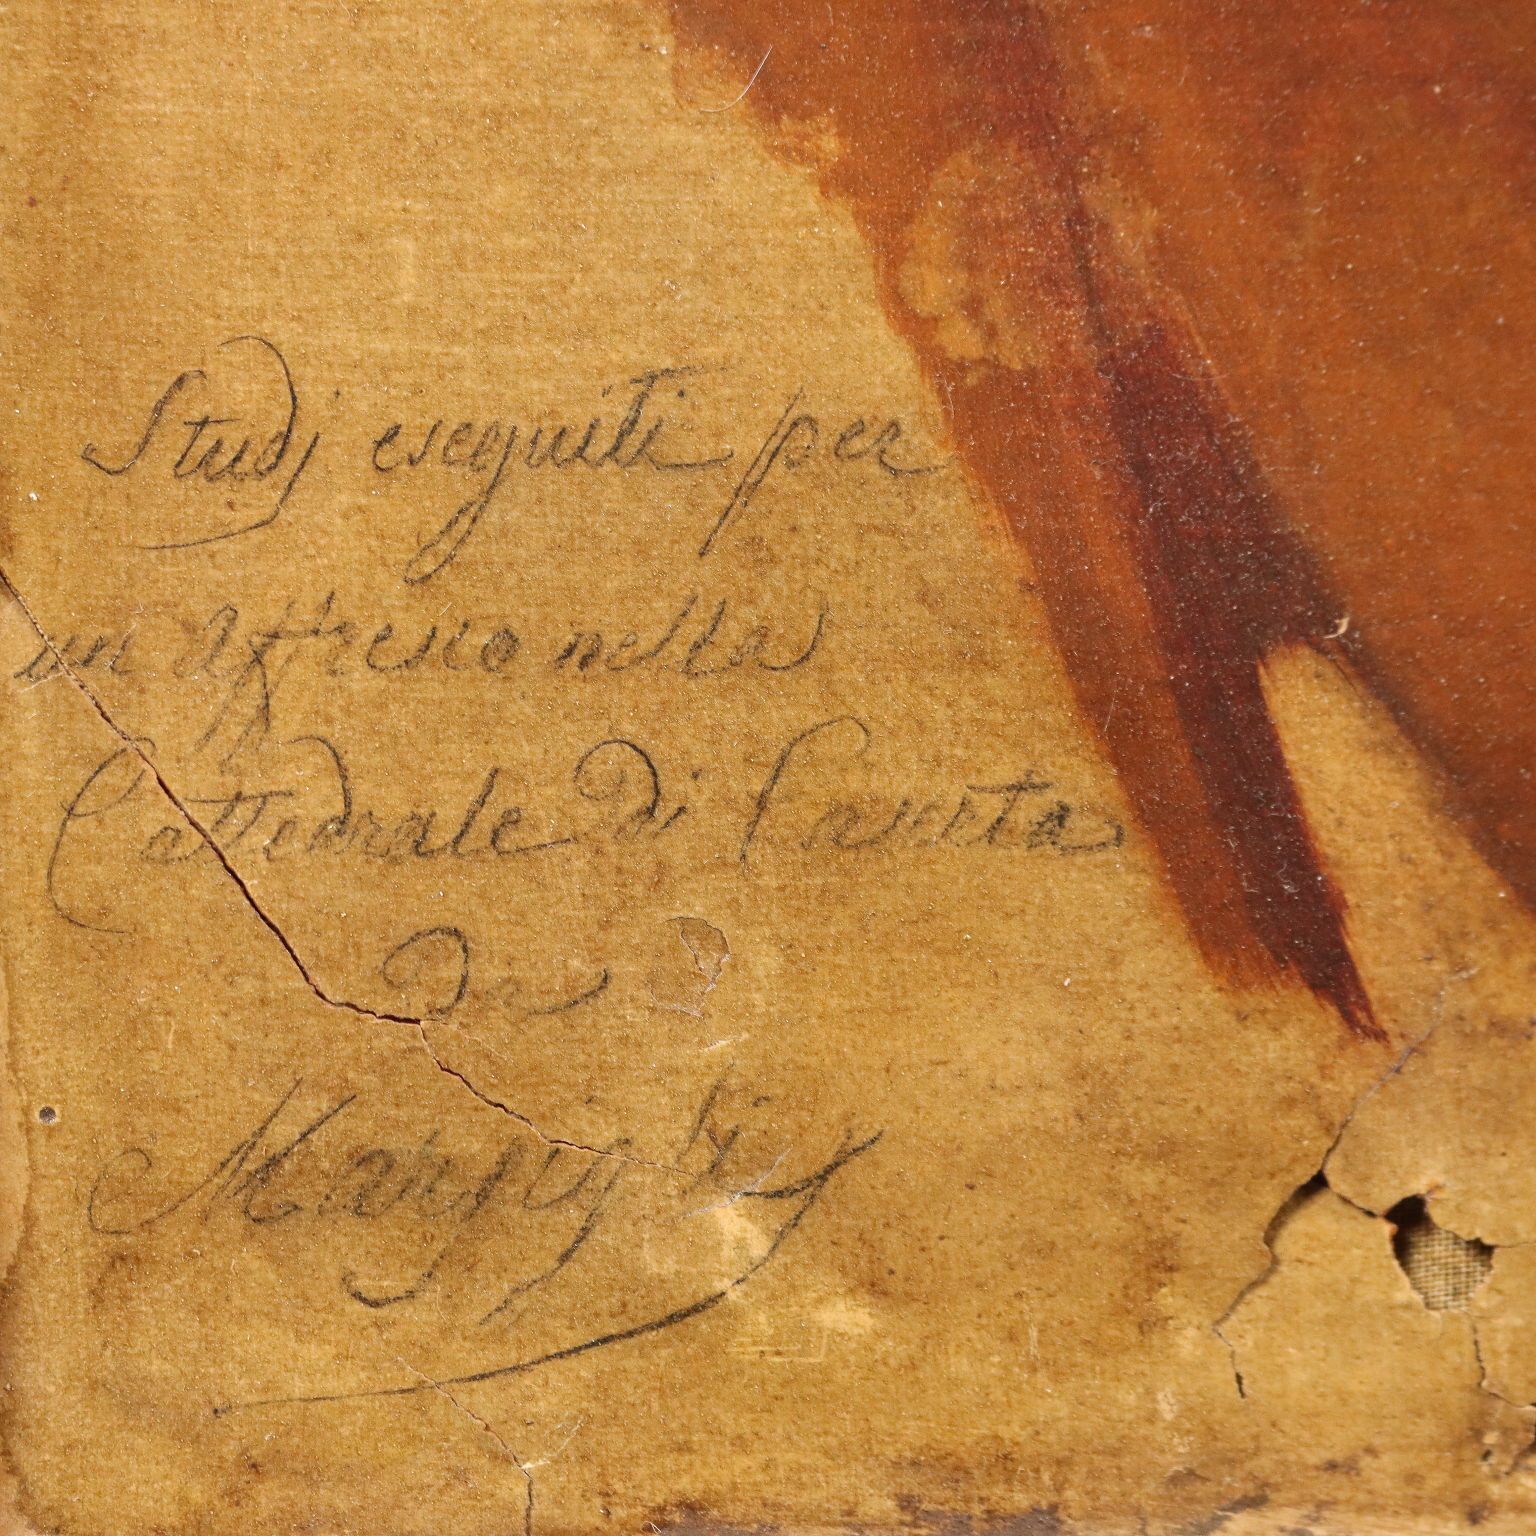 Studj eseguiti per
un affresco nella
Cattedrale di Caserta
Da
Marsigli